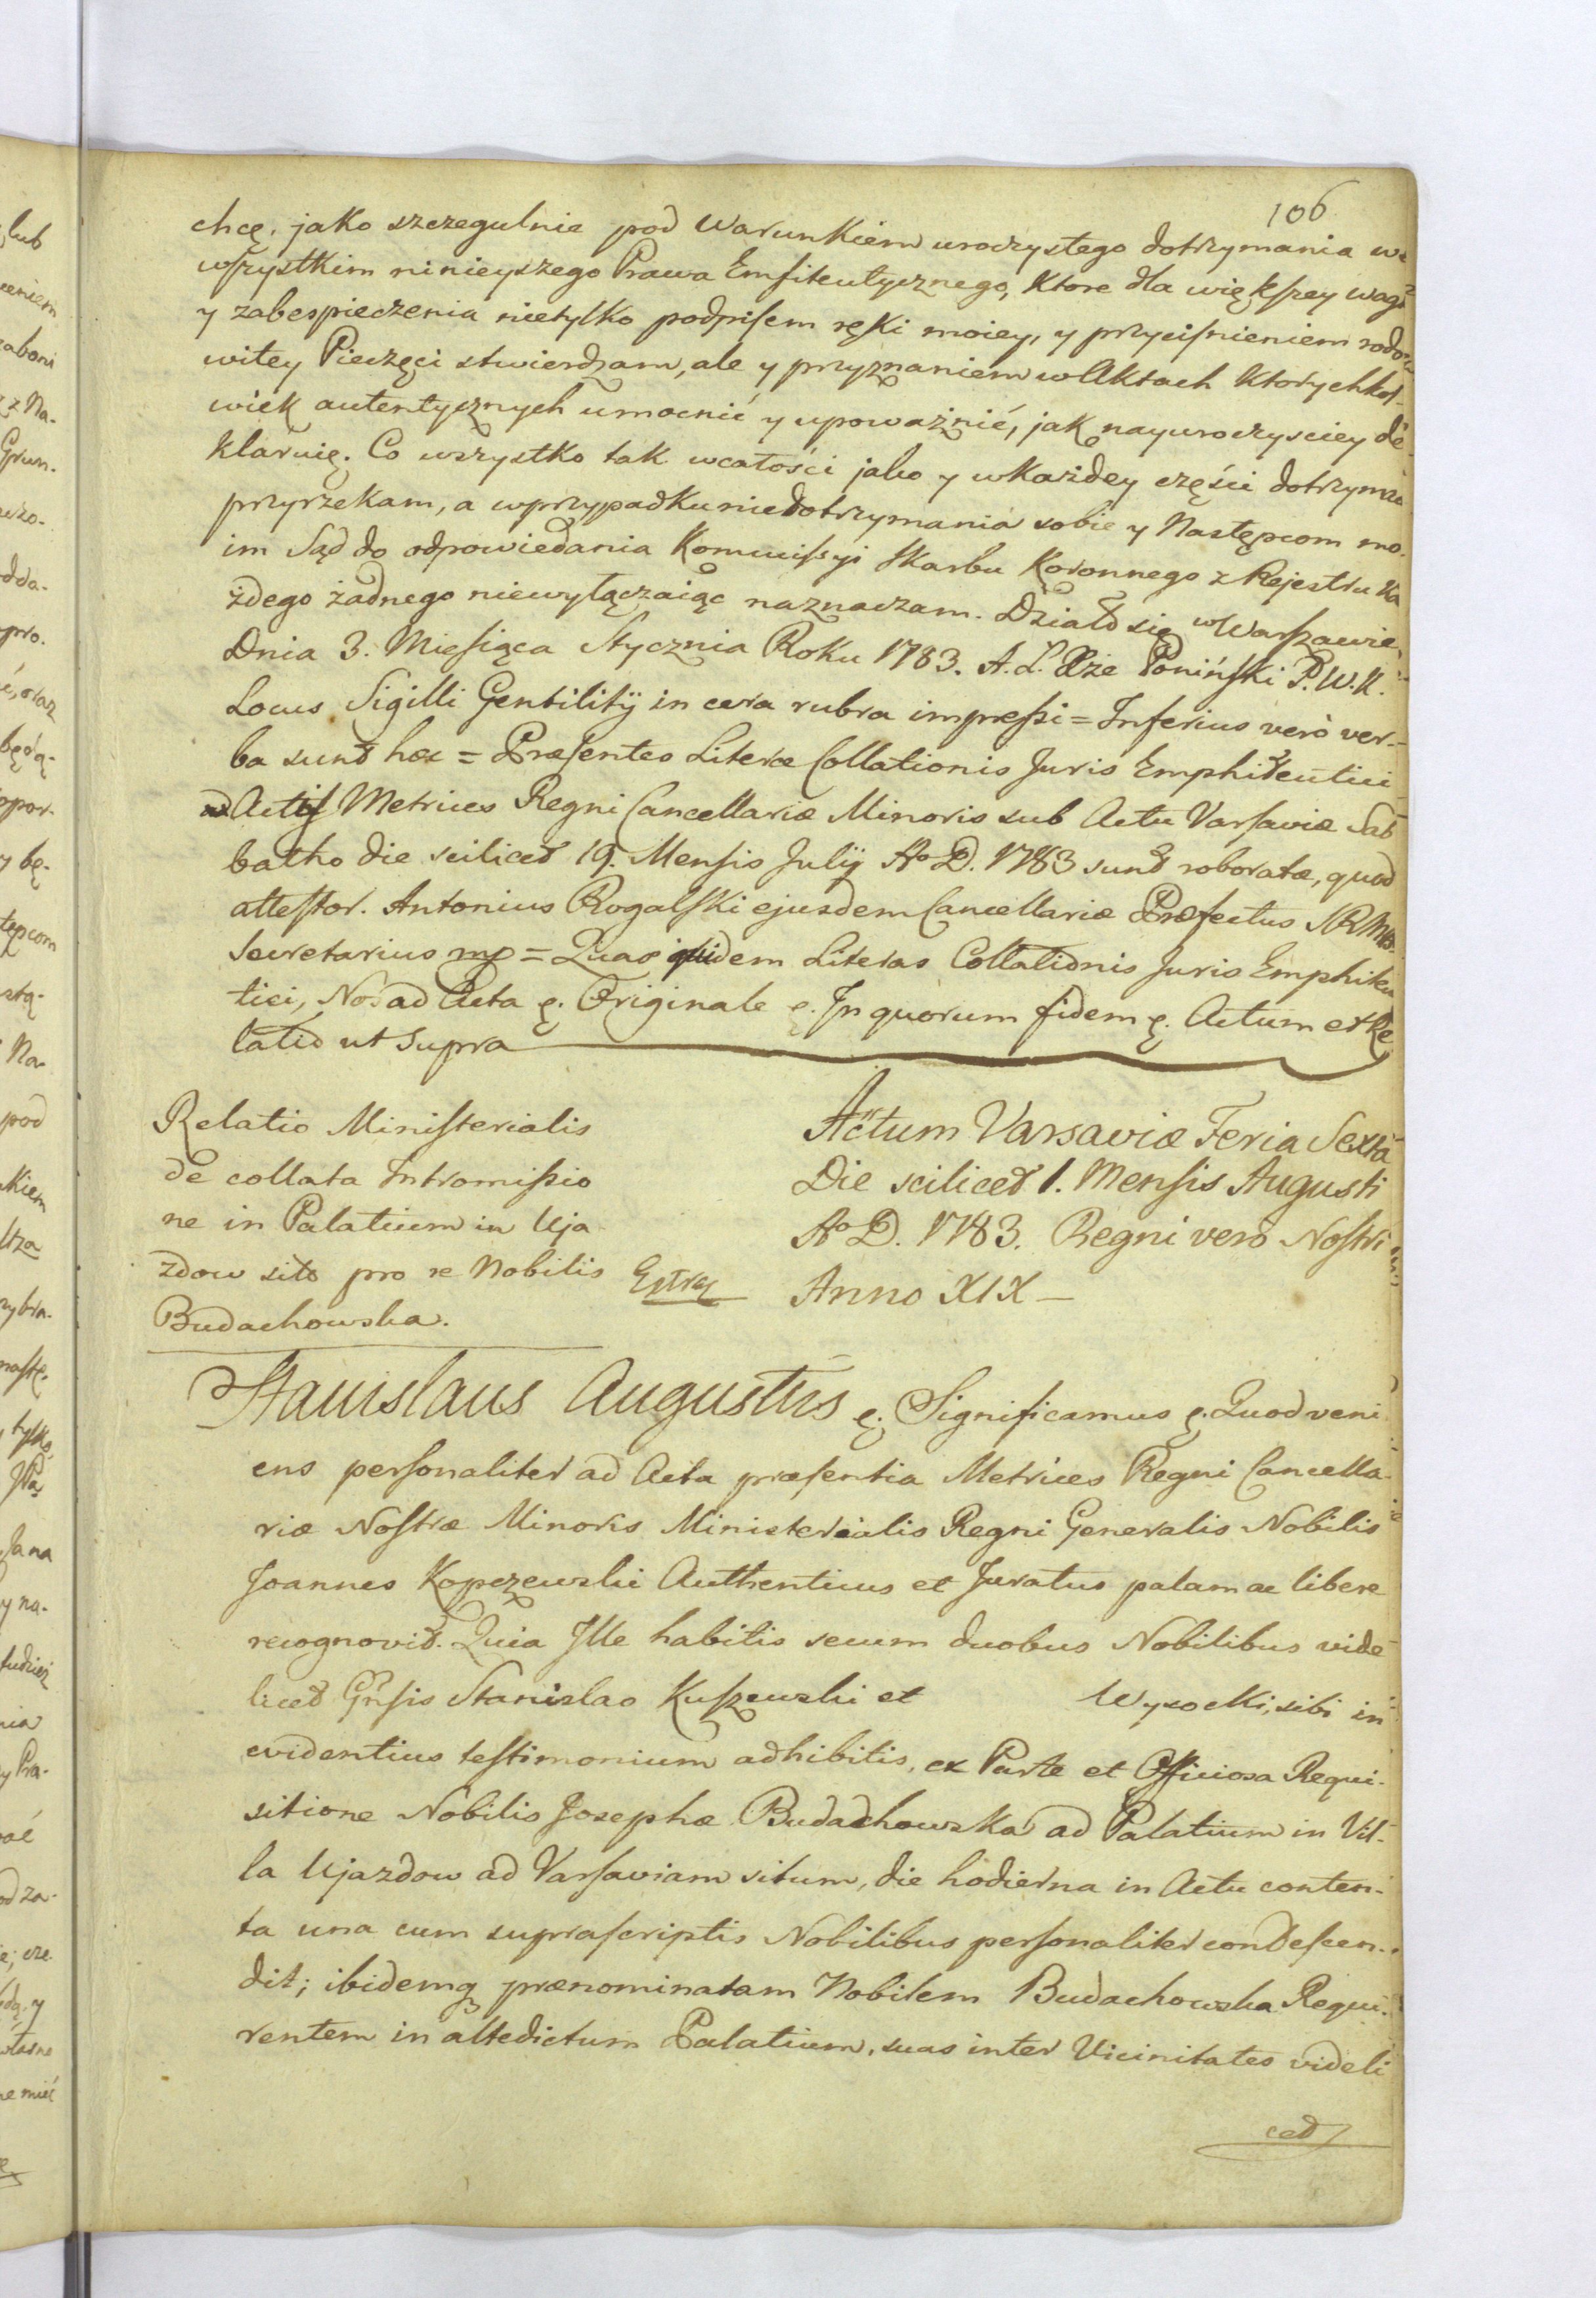 106
chcę. jako szczegulnie pod Warunkiem uroczystego dotrzymania we
wszystkim ninieyszego Prawa Emfiteutycznego, Ktore dla większey wagi
y zabespieczenia nietylko podpisem ręki moiey, y przyciśnieniem rodo-
witey Pieczęci stwierdzam, ale y przyznaniem w Aktach Ktorychkol-
wiek autentycznych umocnić y upoważnić, jak nayuroczyściey de-
klaruię. Co wszystko tak wcałości jako y wkażdey części dotrzymać
przyrzekam, a wprzypadku niedotrzymania sobie y Następcom mo-
im Sąd do odpowiedania Kommissyi Skarbu Koronnego z Rejestru Ka
żdego żadnego niewyłączaiąc naznaczam. Działo się w Warszawie
Dnia 3. Miesiąca Stycznia Roku 1783. A. L. Xże Poniński P. W. K.
Locus Sigilli Gentilitÿ in cera rubra impressi = Inferius verò ver-
ba sunt hæc = Præsentes Literæ Collationis Juris Emphiteutici
ad Actis Metrices Regni Cancellariæ Minoris sub Actu Varsaviæ Sab
batho die scilicet 19. Mensis Julÿ Ao D. 1783 sunt roboratæ, quod
attestor. Antonius Rogalski ejusdem Cancellariæ Præfectus SRM
Secretarius mp = Quas quidem Literas Collationis Juris Emphiteu
tici, Nos ad Acta &. Originale &. In quorum fidem &. Actum et Re
latio ut supra
Relatio Ministerialis
de collata Intromissio
ne in Palatium in Uja
zdow sito pro re Nobilis
Budachowska.
Extrad
Actum Varsaviæ Feria Sexta
Die scilicet 1. Mensis Augusti
Ao D. 1783. Regni vero Nostri
Anno XIX —
Stanislaus Augustus &. Significamus &. Quod veni
ens personaliter ad Acta præsentia Metrices Regni Cancella-
riæ Nostræ Minoris Ministerialis Regni Generalis Nobilis
Joannes Kopczewski Authenticus et Juratus palam ac libere
recognovit. Quia Ille habitis secum duobus Nobilibus vide
licet Gnsis Stanislao Kuszewski et Wysocki, sibi in
evidentius testimonium adhibitis, ex Parte et Officiosa Requi-
sitione Nobilis Josephæ Budachowska ad Palatium in Vil-
la Ujazdow ad Varsaviam situm, die hodierna in Actu conten-
ta una cum suprascriptis Nobilibus personaliter condescen-
dit; ibidemq prænominatam Nobilem Budachowska Requi-
rentem in altedictum Palatium, suas inter Vicinitates videli
cet